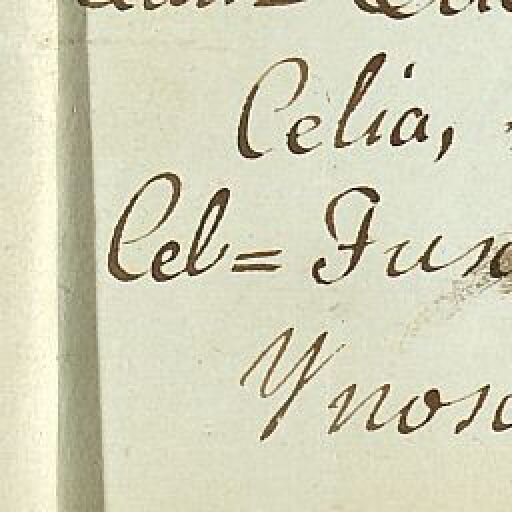 Celia,
Cel= Fus
Ynos